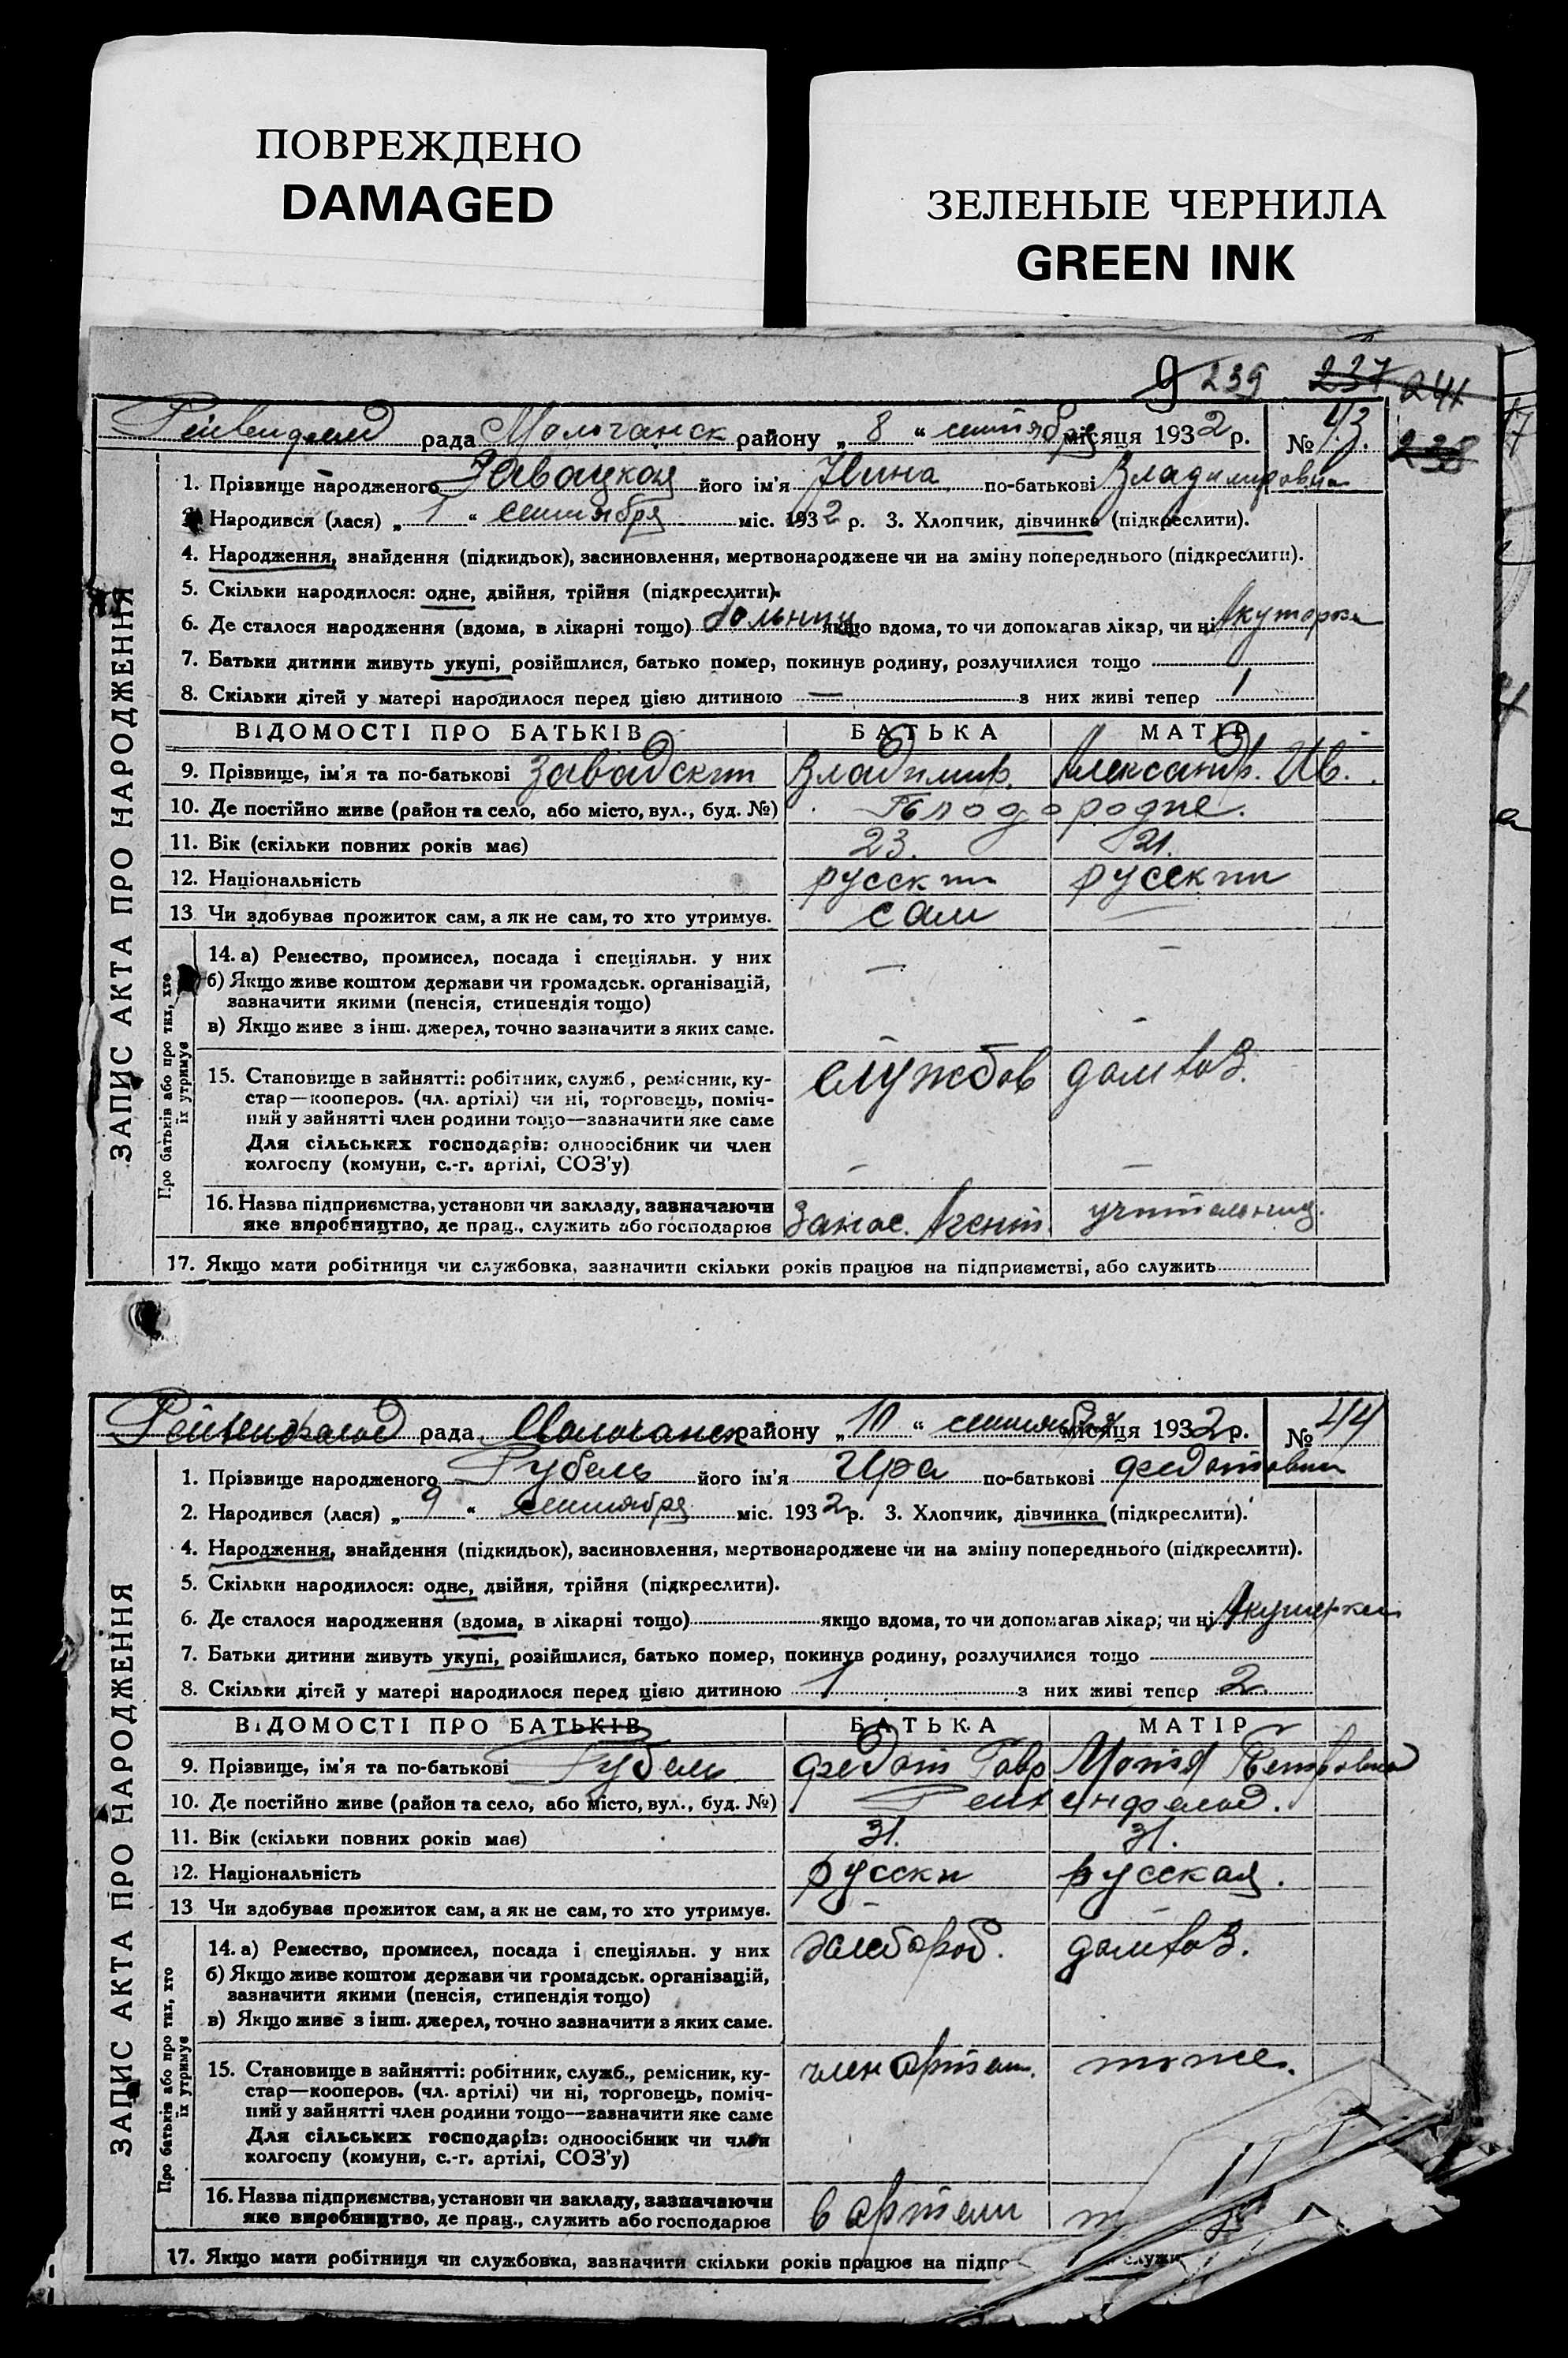 ПОВРЕЖДЕНО
DAMAGED
ЗЕЛЕНЫЕ ЧЕРНИЛА
GREEN INK
9 239 237 241
238
рада Молочанск району „ 8 “ сентября місяця 1932 р. № 43.
1. Прізвище народженого Завацкая його ім'я Нина по-батькові Владимировна
2. Народився (лася) „ 1 “ сентября міс. 1932 р. 3. Хлопчик, дівчинка (підкреслити).
4. Народження, знайдення (підкидьок), засиновлення, мертвонароджене чи на зміну попереднього (підкреслити).
5. Скільки народилося: одне, двійня, трійня (підкреслити).
6. Де сталося народження (вдома, в лікарні тощо) больниц якщо вдома, то чи допомагав лікар, чи ні
7. Батьки дитини живуть укупі, розійшлися, батько помер, покинув родину, розлучилися тощо
8. Скільки дітей у матері народилося перед цією дитиною — з них живі тепер 1
ВІДОМОСТІ ПРО БАТЬКІВ БАТЬКА МАТІР
9. Прізвище, ім'я та по-батькові Завадский Владимир. Александр. Ив.
10. Де постійно живе (район та село, або місто, вул., буд. №) Плодородне.
11. Вік (скільки повних років має) 23. 21.
12. Національність русский русский
13 Чи здобував прожиток сам, а як не сам, то хто утримує. сам —
14. а) Ремество, промисел, посада і спеціяльн. у них — —
б) Якщо живе коштом держави чи громадськ. організацій,
зазначити якими (пенсія, стипендія тощо)
в) Якщо живе з інш. джерел, точно зазначити з яких саме.
15. Становище в зайнятті: робітник, служб., ремісник, ку-
стар—кооперов. (чл. артілі) чи ні, торговець, поміч-
ний у зайнятті член родини тощо—зазначити яке саме
службов домхоз.
Для сільських господарів: одноосібник чи член
колгоспу (комуни, с.-г. артілі, СОЗ'у) — —
16. Назва підприємства, установи чи закладу, зазначаючи
яке виробництво, де прац., служить або господарює Агент учительниц.
17. Якщо мати робітниця чи службовка, зазначити скільки років працює на підприємстві, або служить
ЗАПИС АКТА ПРО НАРОДЖЕННЯ
Про батьків або про тих, хто їх утримує
рада Молочанск району „ 10 “ сентября місяця 1932 р. № 44
1. Прізвище народженого Рубель його ім'я Ира по-батькові Федотовна
2. Народився (лася) „ 9 “ сентября міс. 1932 р. 3. Хлопчик, дівчинка (підкреслити).
4. Народження, знайдення (підкидьок), засиновлення, мертвонароджене чи на зміну попереднього (підкреслити).
5. Скільки народилося: одне, двійня, трійня (підкреслити).
6. Де сталося народження (вдома, в лікарні тощо) якщо вдома, то чи допомагав лікар, чи ні Акушерка
7. Батьки дитини живуть укупі, розійшлися, батько помер, покинув родину, розлучилися тощо
8. Скільки дітей у матері народилося перед цією дитиною 1 з них живі тепер 2
ВІДОМОСТІ ПРО БАТЬКІВ БАТЬКА МАТІР
9. Прізвище, ім'я та по-батькові Рубель Федот Гавр Петровна
10. Де постійно живе (район та село, або місто, вул., буд. №)
11. Вік (скільки повних років має) 31. 31.
12. Національність русски русская.
13 Чи здобував прожиток сам, а як не сам, то хто утримує. — —
14. а) Ремество, промисел, посада і спеціяльн. у них хлебороб. домхоз.
б) Якщо живе коштом держави чи громадськ. організацій,
зазначити якими (пенсія, стипендія тощо)
в) Якщо живе з інш. джерел, точно зазначити з яких саме.
15. Становище в зайнятті: робітник, служб., ремісник, ку-
стар—кооперов. (чл. артілі) чи ні, торговець, поміч-
ний у зайнятті член родини тощо—зазначити яке саме
член артели. тоже.
Для сільських господарів: одноосібник чи член
колгоспу (комуни, с.-г. артілі, СОЗ'у)
16. Назва підприємства, установи чи закладу, зазначаючи
яке виробництво, де прац., служить або господарює в артели
17. Якщо мати робітниця чи службовка, зазначити скільки років працює на підпр служи
ЗАПИС АКТА ПРО НАРОДЖЕННЯ
Про батьків або про тих, хто їх утримує